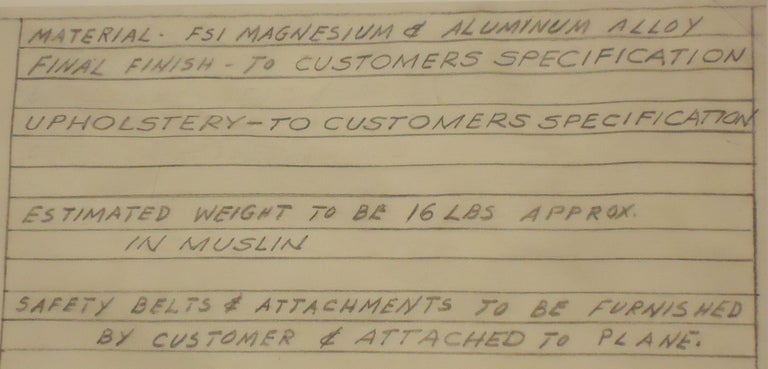 MATERIAL- FSI MAGNESIUM & ALUMINUM ALLOY
FINAL FINISH - TO CUSTOMERS SPECIFICATION
UPHOLSTERY-TO CUSTOMERS SPECIFICATION
ESTIMATED WEIGHT TO BE 16 LBS APPROX.
IN MUSLIN
SAFETY BELTS & ATTACHMENTS TO BE FURNISHED
BY CUSTOMER & ATTACHED TO PLANE.